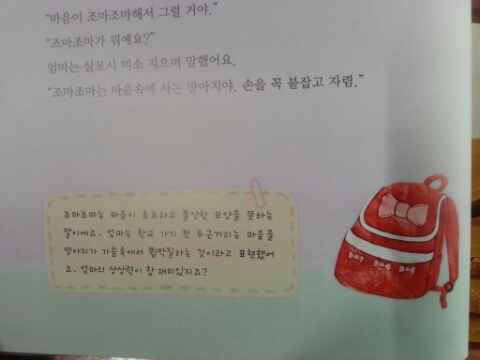 "마음이 조마조마해서 그럴 거야."
"조마조마가 뭐예요?"
엄마는 살포시 미소 지으며 말했어요.
"조마조마는 마음속에 사는 망아지야. 손을 꼭 붙잡고 자렴."
조마조마는 마음이 초조하고 불안한 모양을 뜻하는
말이에요. 엄마는 학교 가기 전 두근거리는 마음을
망아지가 가슴속에서 뜀박질하는 것이라고 표현했어
요. 엄마의 상상력이 참 재미있지요?